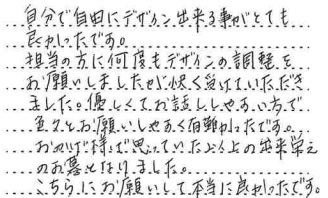 自分で自由にデザイン出来る事がとても
良かったです。
担当の方に何度もデザインの調整を
お願いしましたが快く受けていただき
ました。優しくてお話ししやすい方で
色々とお願いしやすく有難かったです。
おかげ様で思っていた以上の出来栄え
のお墓となりました。
こちらにお願いして本当に良かったです。